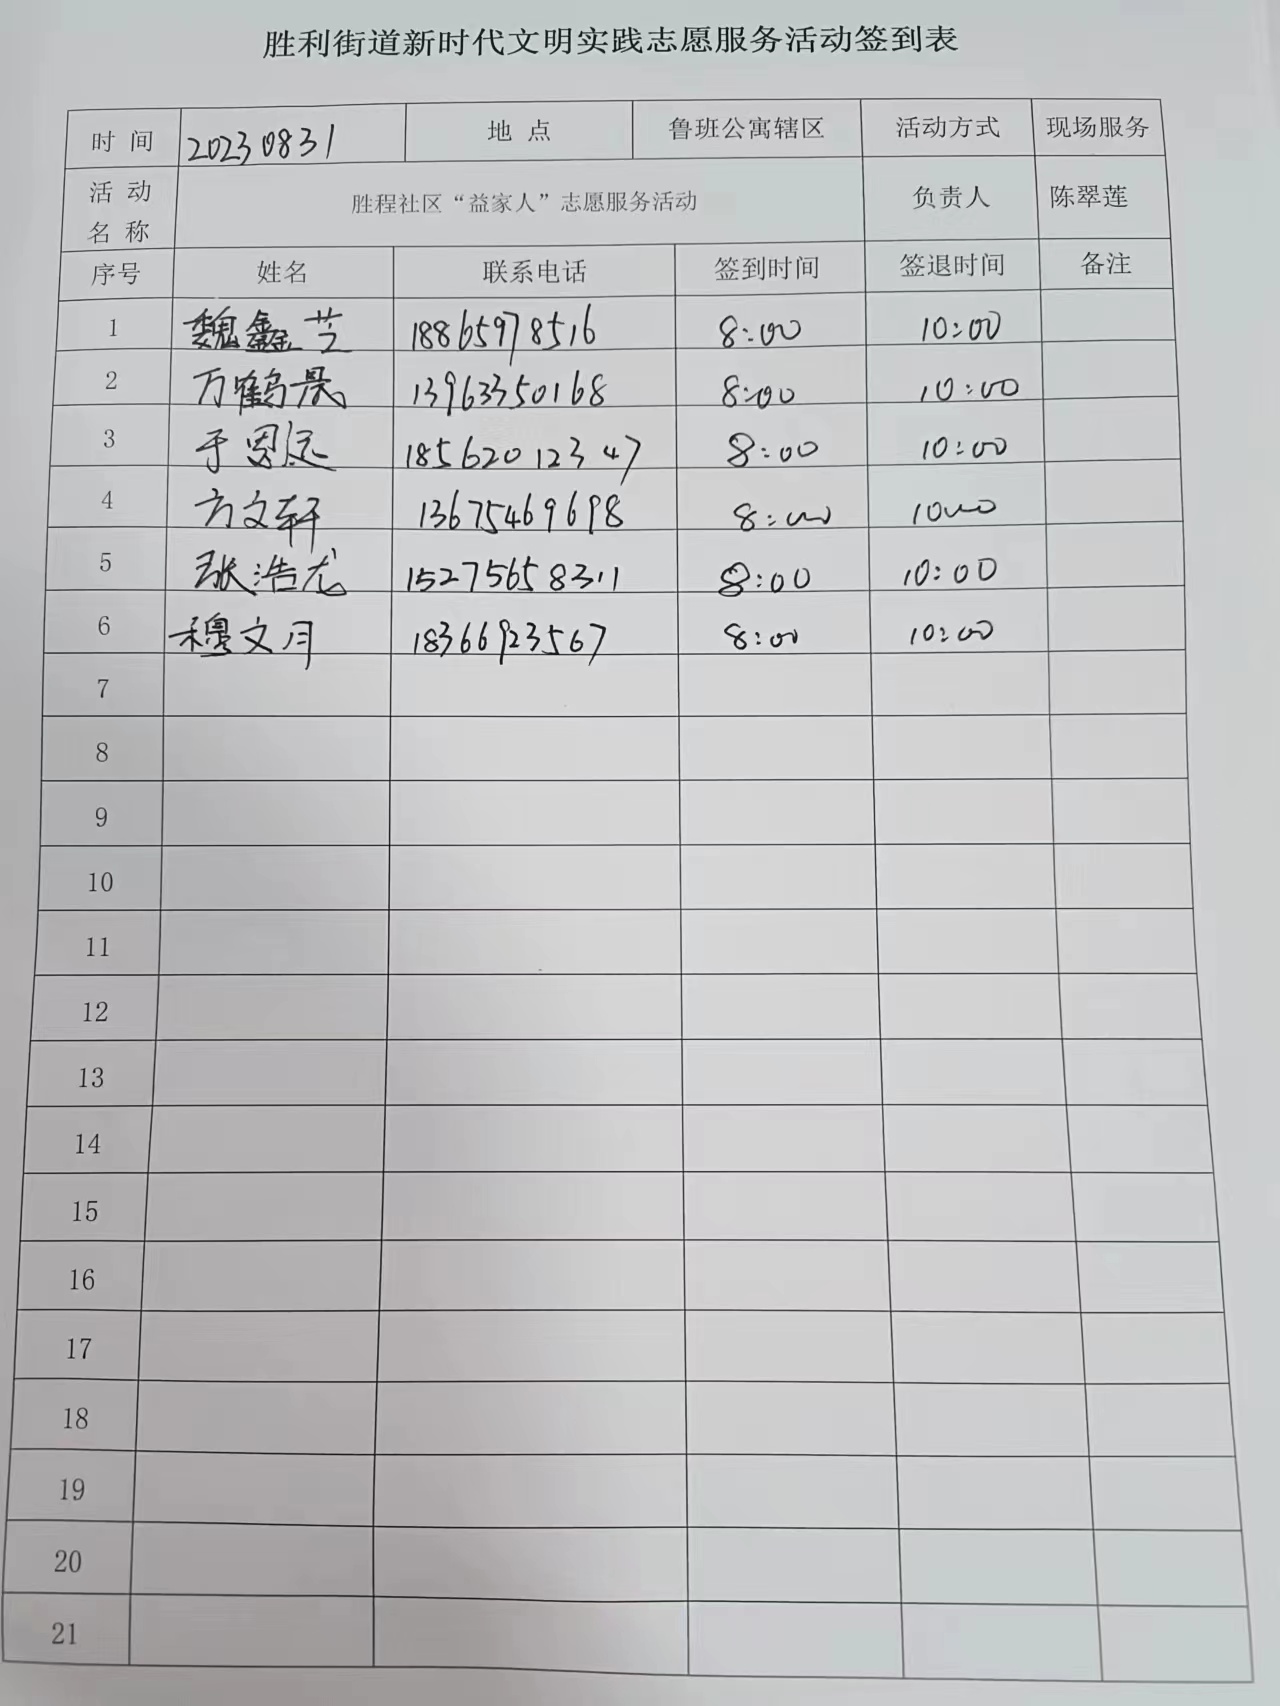 胜利街道新时代文明实践志愿服务活动签到表
时 间 20230831 地 点 鲁班公寓辖区 活动方式 现场服务
活 动 名 称 胜程社区“益家人”志愿服务活动 负责人 陈翠莲
序号 姓名 联系电话 签到时间 签退时间 备注
1 魏鑫芝 18865978516 8:00 10:00
2 万鹤晟 13963350168 8:00 10:00
3 于恩运 18562012347 8:00 10:00
4 方文轩 13675469698 8:00 10:00
5 张浩龙 15275658311 8:00 10:00
6 穆文月 18366923567 8:00 10:00
7
8
9
10
11
12
13
14
15
16
17
18
19
20
21